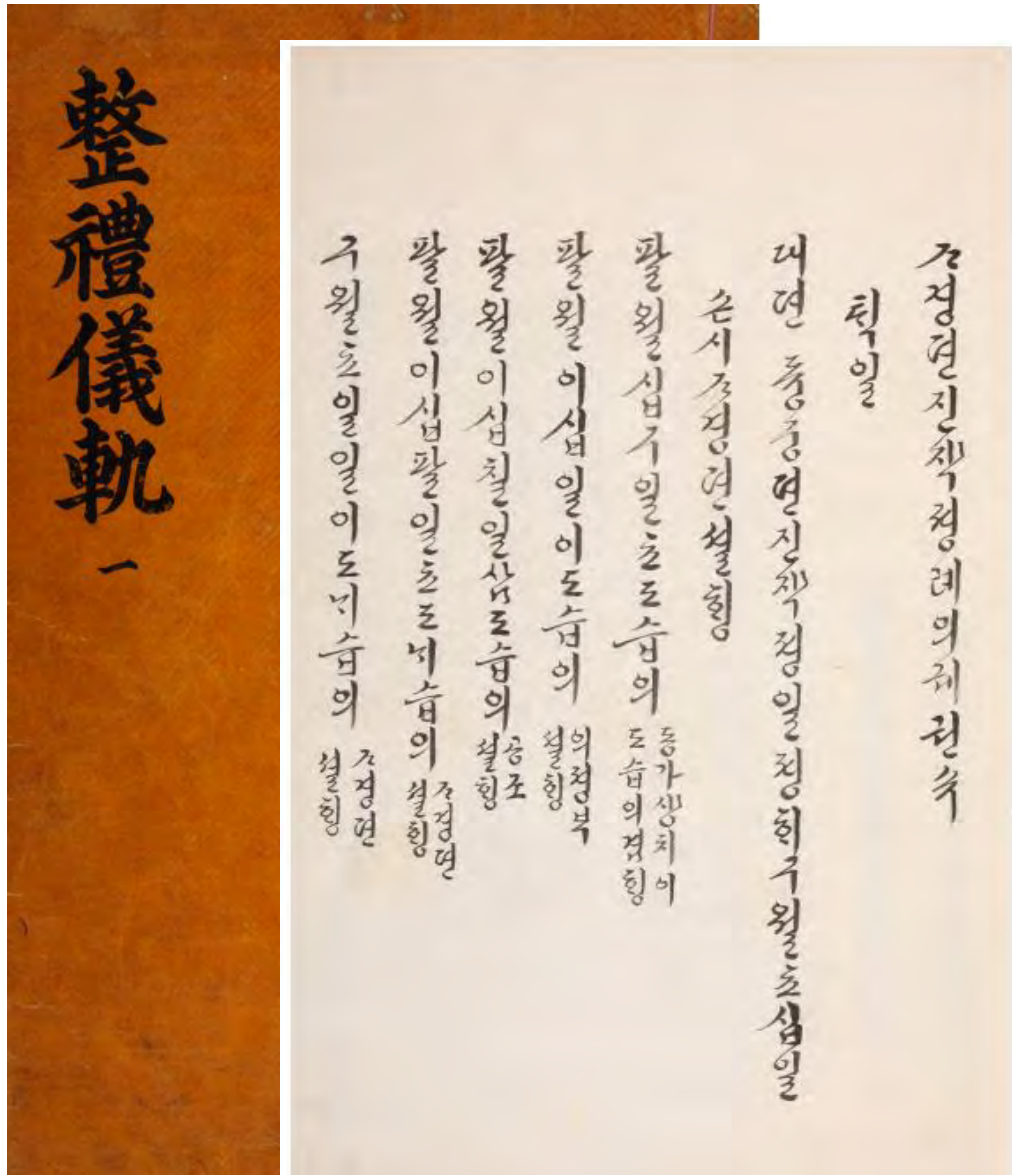 整禮儀軌 一
ᄌᆞ경뎐진쟉졍례의궤권슈
ᄐᆡᆨ일
대뎐 듕궁뎐진쟉졍일졍ᄒᆡ구월초십일
손시ᄌᆞ경뎐셜ᄒᆡᆼ
팔월십구일초도습의
동가ᄉᆡᆼ치이
도습의겸ᄒᆡᆼ
팔월이십일이도습의
의졍부
셜ᄒᆡᆼ
팔월이십칠일삼도습의
공조
셜ᄒᆡᆼ
팔월이십팔일초도ᄂᆡ습의
ᄌᆞ경뎐
셜ᄒᆡᆼ
구월초일일이도ᄂᆡ습의
ᄌᆞ경뎐
셜ᄒᆡᆼ